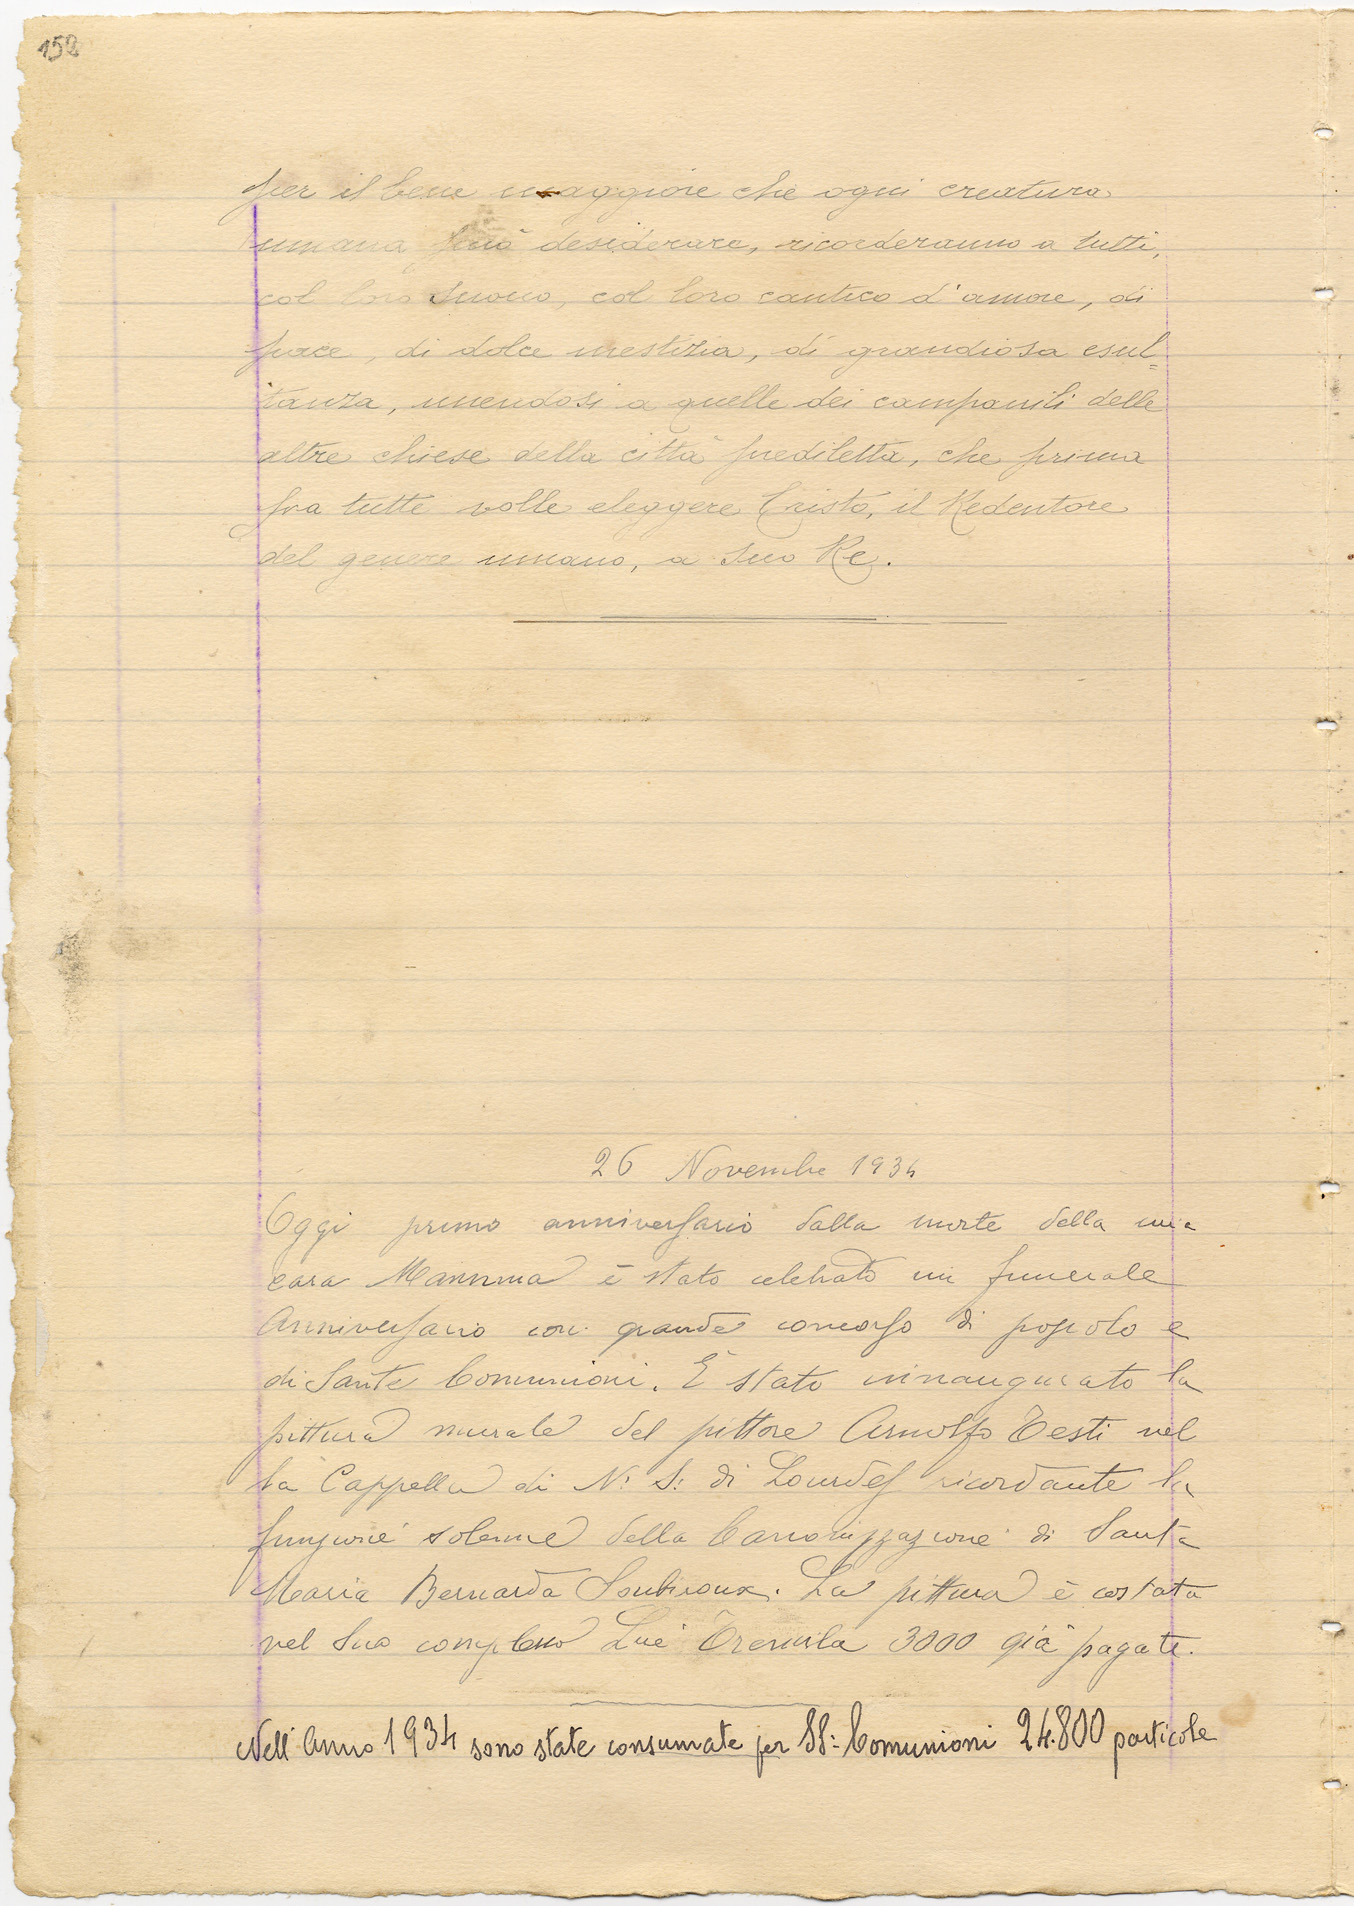 152
per il bene maggiore che ogni creatura
umana può desiderare, ricorderanno a tutti,
col loro suono, col loro cantico d'amore, di
pace, di dolce mestizia, di grandiosa esul=
tanza, unendosi a quelle dei campanili delle
altre chiese della città prediletta, che prima
fra tutte volle eleggere Cristo, il Redentore
del genere umano, a suo Re.
26 Novembre 1934
Oggi primo anniversario dalla morte della mia
cara Mamma è stato celebrato un funerale
Anniversario con grande concorso di popolo e
di Sante Comunioni. È stato innaugurato la
pittura murale del pittore Arnolfo Testi nel
la Cappella di N: S: di Lourdes ricordante la
funzione solenne della Canonizzazione di Santa
Maria Bernarda Soubiroux. La pittura è costata
nel suo complesso Lire Tremila 3000 già pagate.
Nell'Anno 1934 sono state consumate per SS: Comunioni 24.800 particole